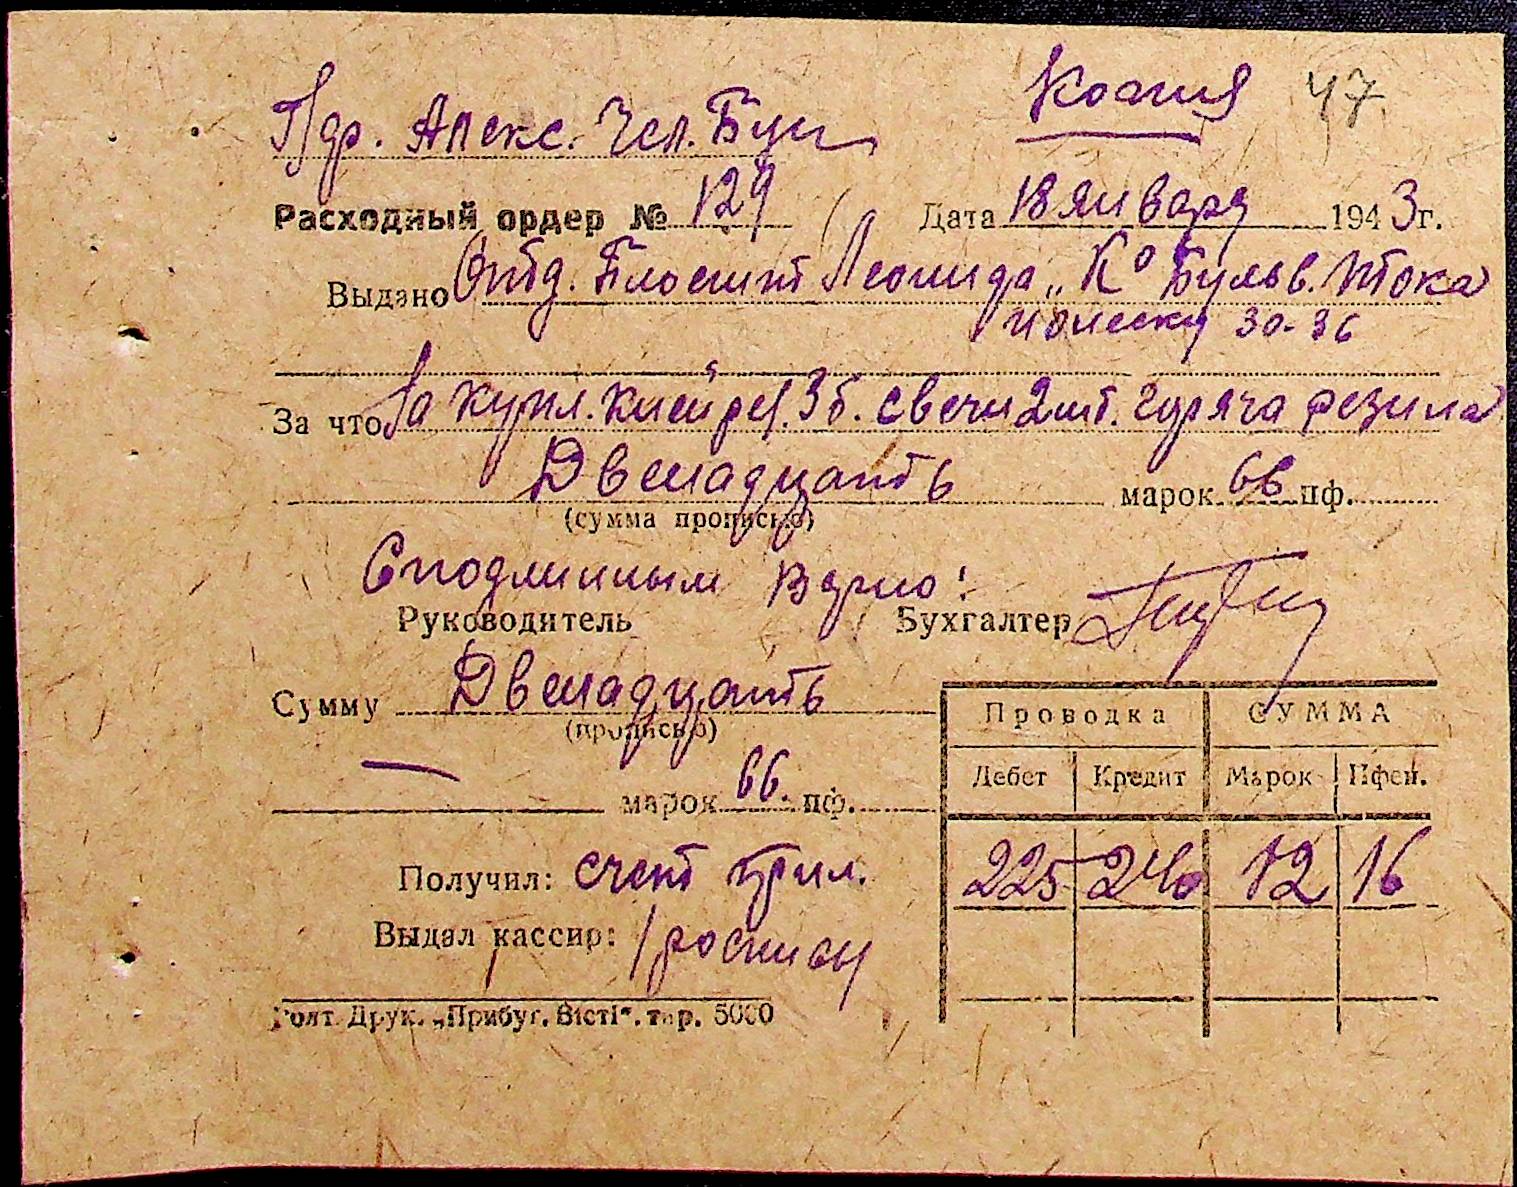 Копия 47
Расходный ордер № 129 Дата 18 января 1943 г.
Выдано Леонида „К⁰ Бульв. Итока
Ионеску 30-36
За что За купл. клей рез. 3 б. свечи 2 шт. горяча резина
Двенадцать марок 66 пф.
(сумма прописью)
С подлинным верно!
Руководитель Бухгалтер
Сумму Двенадцать
(прописью)
марок 66. пф.
Проводка СУММА
Дебет Кредит Марок Пфен.
225 240 12 16
Получил: счет прил.
Выдал кассир: росписы
Друк. „Прибуг. Вісті". тир. 5000